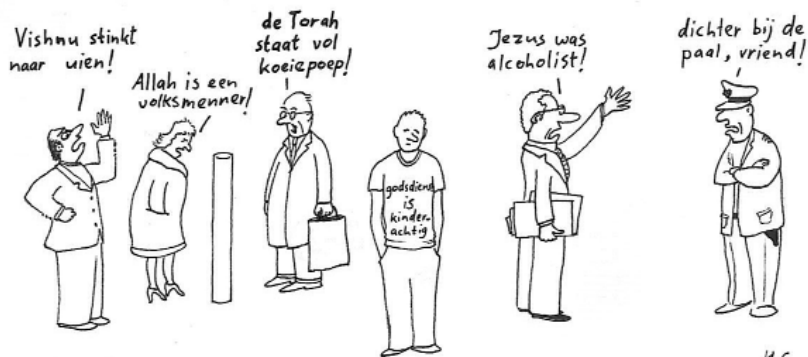 Vishnu stinkt
naar uien!
Allah is een
volksmenner!
de Torah
staat vol
koeiepoep!
godsdienst
is
kinder-
achtig
Jezus was
alcoholist!
dichter bij de
paal, vriend!